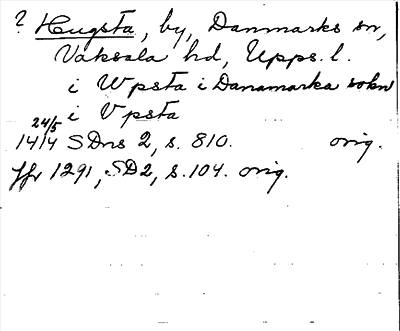 ? Hugsta, by, Danmarks sn,
Vaksala hd, Upps. l.
i Wpsta i Danamarka sokn
i Vpsta
24/5
1414 SDns 2, s. 810. orig.
Jfr 1291, SD2, s. 104. orig.